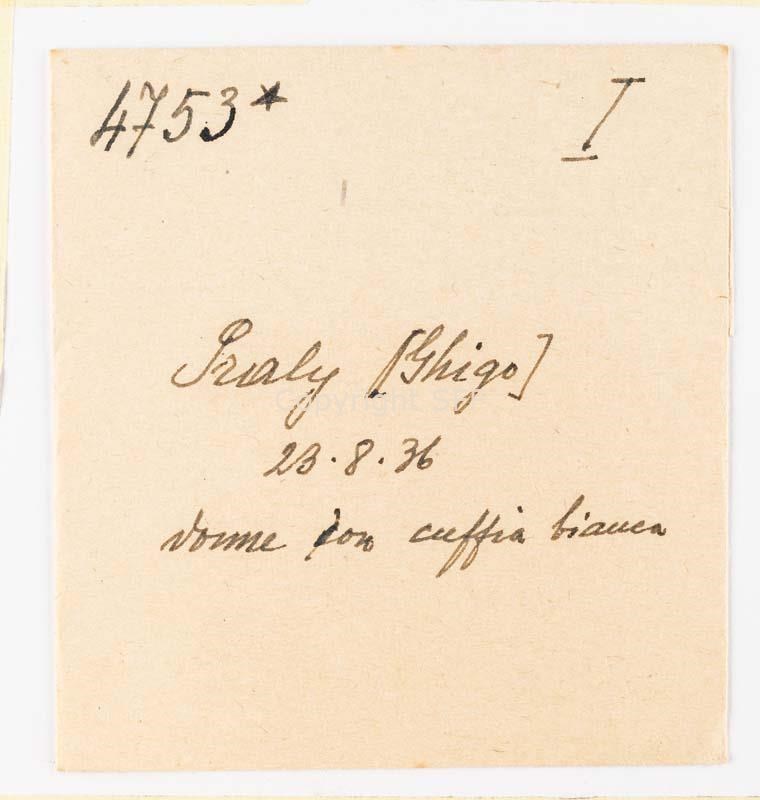 4753* I
Praly [Ghigo]
23.8.36
donne con cuffia bianca